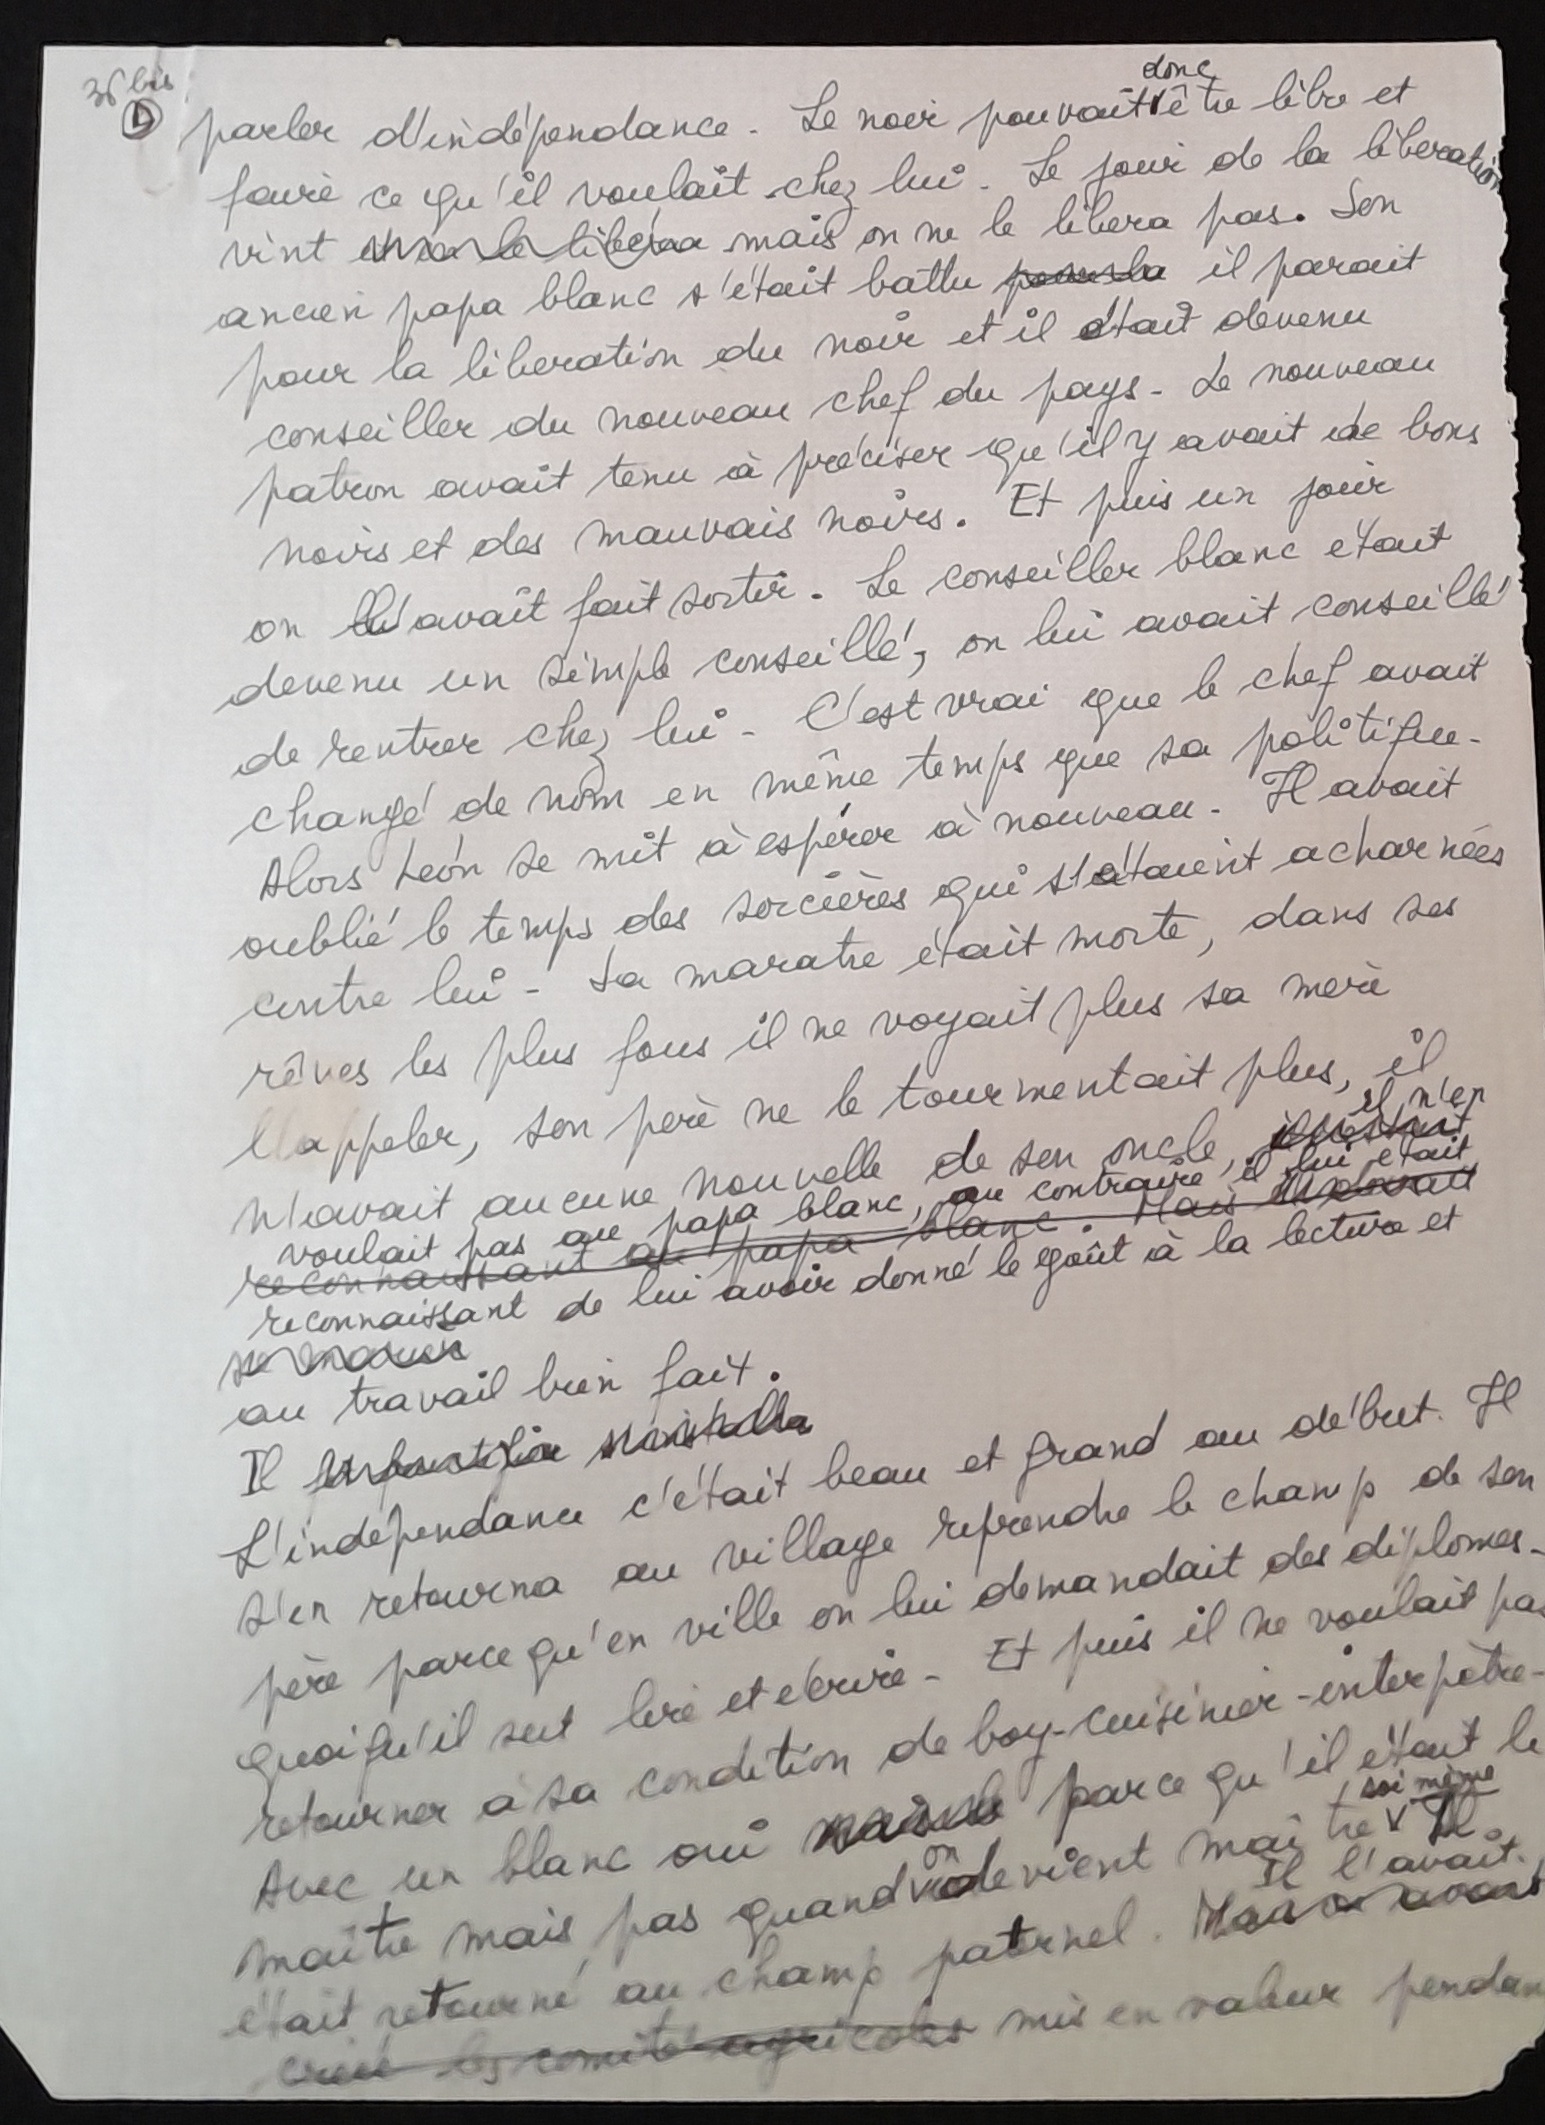 36 bis
D
parler d'indépendance. Le noir pouvait donc être libre et
faire ce qu'il voulait chez lui. Le jour de la liberation
vint mais on ne le libera pas. Son
ancien papa blanc s'était battu il parait
pour la liberation du noir et il était devenu
conseiller du nouveau chef du pays. Le nouveau
patron avait tenu à préciser qu'il y avait de bons
noirs et des mauvais noirs. Et puis un jour
on l'avait fait sortir. Le conseiller blanc etait
devenu un simple conseillé, on lui avait conseillé
de rentrer chez lui. C'est vrai que le chef avait
changé de nom en même temps que sa politique.
Alors Léon se mit à espérer à nouveau. Il avait
oublié le temps des sorcières qui s'étaient acharnées
contre lui. Sa maratre était morte, dans ses
rêves les plus fous il ne voyait plus sa mère
l'appeler, son père ne le tourmentait plus, il
n'avait aucune nouvelle de son oncle, il n'en
voulait pas au papa blanc, au contraire il lui etait
reconnaissant au papa blanc. Mais il devait
reconnaissant de lui avoir donné le goût à la lecture et
se marier
au travail bien fait.
Il
L'indépendance c'était beau et grand au début. Il
s'en retourna au village reprendre le champ de son
père parce qu'en ville on lui demandait des diplomes.
quoiqu'il sut lire et écrire. Et puis il ne voulait pas
retourner à sa condition de boy-cuisinier-interpètre.
Avec un blanc oui parce qu'il était le
maître mais pas quand on devient maître soi même
Il l'avait
était retourné au champ paternel.
créé les comités agricoles mis en valeur pendan